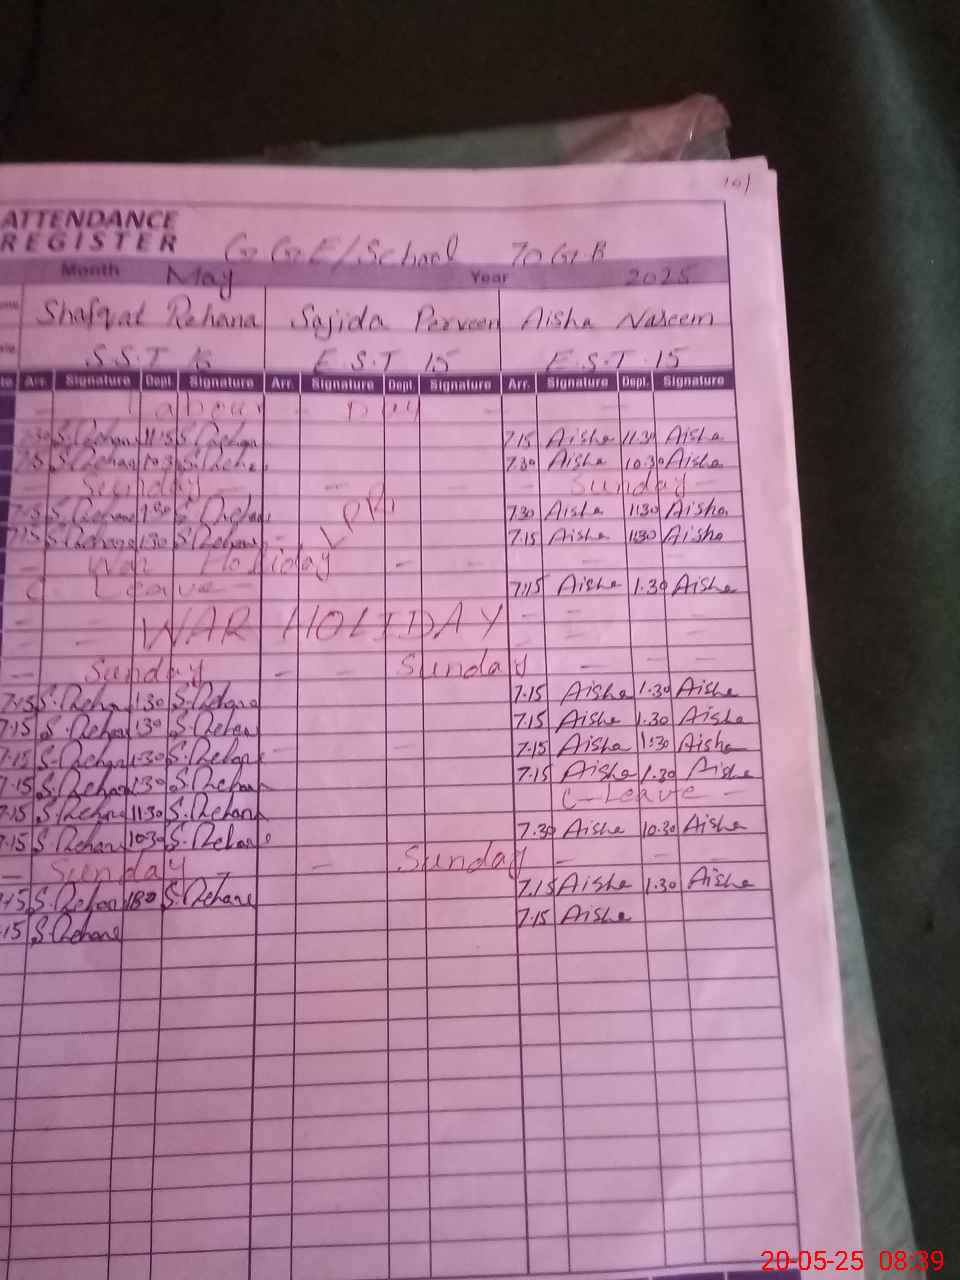 ATTENDANCE
REGISTER G G E/School 70 G.B
Month May Year 2025
Shafqat Rehana Sajida Perveen Aisha Naseem
S.S.T 16 E.S.T 15 E.S.T 15
Arr. Signature Dept. Signature Arr. Signature Dept. Signature Arr. Signature Dept. Signature
Labour Day
S.Rehana 11:15 S.Rehana 7.15 Aisha 11.30 Aisha
S.Rehana S.Reha 7.30 Aisha 10.30 Aisha
Sunday Sunday
S.Rehana 1.30 S.Rehana LPR 7.30 Aisha 1:30 Aisha
7:15 S.Rehana 1.30 S.Rehana 7.15 Aisha 1:30 Aisha
War Holiday
C Leave 7.15 Aisha 1.30 Aisha
WAR HOLIDAY
Sunday Sunday
7.15 S.Rehana 1.30 S.Rehana 7.15 Aisha 1.30 Aisha
7.15 S.Rehana 1.30 S.Rehana 7.15 Aisha 1.30 Aisha
7.15 S.Rehana 1.30 S.Rehana 7.15 Aisha 1:30 Aisha
7.15 S.Rehana 1.30 S.Rehana 7.15 Aisha 1.30 Aisha
7.15 S.Rehana 11.30 S.Rehana C-Leave
7.15 S.Rehana 10.30 S.Rehana 7.30 Aisha 10.30 Aisha
Sunday Sunday
S.Rehana S.Rehana 7.15 Aisha 1.30 Aisha
.15 S.Rehana 7.15 Aisha
20-05-25 08:39